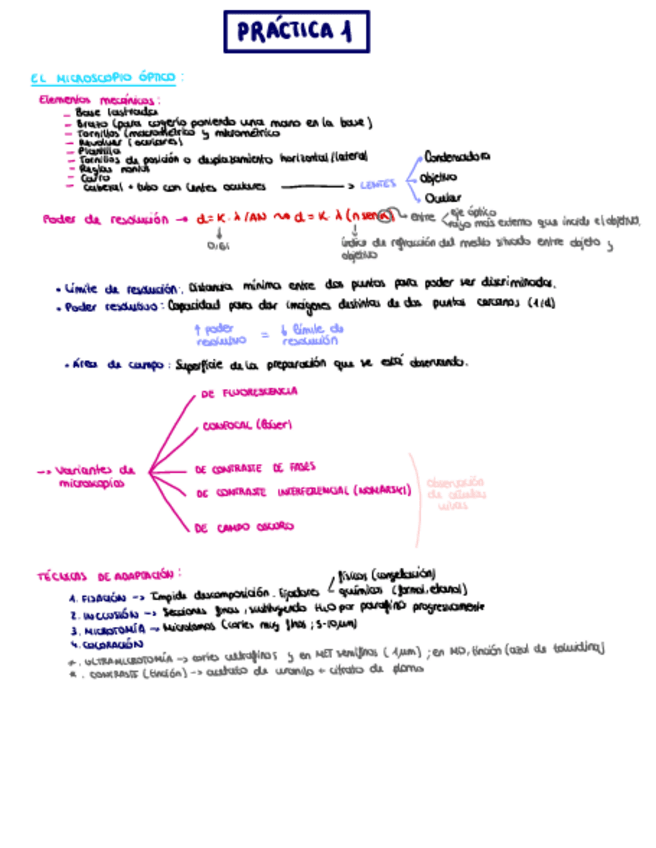 PRÁCTICA 1
EL MICROSCOPIO ÓPTICO:
Elementos mecánicos:
- Base lastrada
- Brazo (para cogerlo poniendo una mano en la base)
- Tornillos (macrométrico y micrométrico
- Revolver (oculares)
- Platina
- Tornillos de posición o desplazamiento horizontal/lateral
- Reglas nonius
- Carro
- Cabezal + tubo con lentes oculares → LENTES
Condensadora
Objetivo
Ocular
Poder de resolución → d = K · λ/AN ~> d = K · λ (n senα) entre
eje óptico
rayo más externo que incide el objetivo.
0,61
índice de refracción del medio situado entre objeto y
objetivo
• Límite de resolución: Distancia mínima entre dos puntos para poder ser discriminados.
• Poder resolutivo: Capacidad para dar imágenes distintas de dos puntos cercanos (1/d)
↑ poder resolutivo = ↓ límite de resolución
• Área de campo: Superficie de la preparación que se está observando.
→ Variantes de
microscopios
DE FLUORESCENCIA
CONFOCAL (láser)
DE CONTRASTE DE FASES
DE CONTRASTE INTERFERENCIAL (NOMARSKI)
DE CAMPO OSCURO
Observación
de células
vivas
TÉCNICAS DE ADAPTACIÓN:
1. FIJACIÓN → Impide descomposición. Fijadores
físicos (congelación)
químicos (formol, etanol)
2. INCLUSIÓN → Secciones finas, sustituyendo H₂O por parafina progresivamente
3. MICROTOMÍA → Micrótomos (cortes muy finos; 5-10 μm)
4. COLORACIÓN
*. ULTRAMICROTOMÍA → cortes ultrafinos y en MET semifinos (1μm); en MO, tinción (azul de toluidina)
*. CONTRASTE (tinción) → acetato de uranilo + citrato de plomo